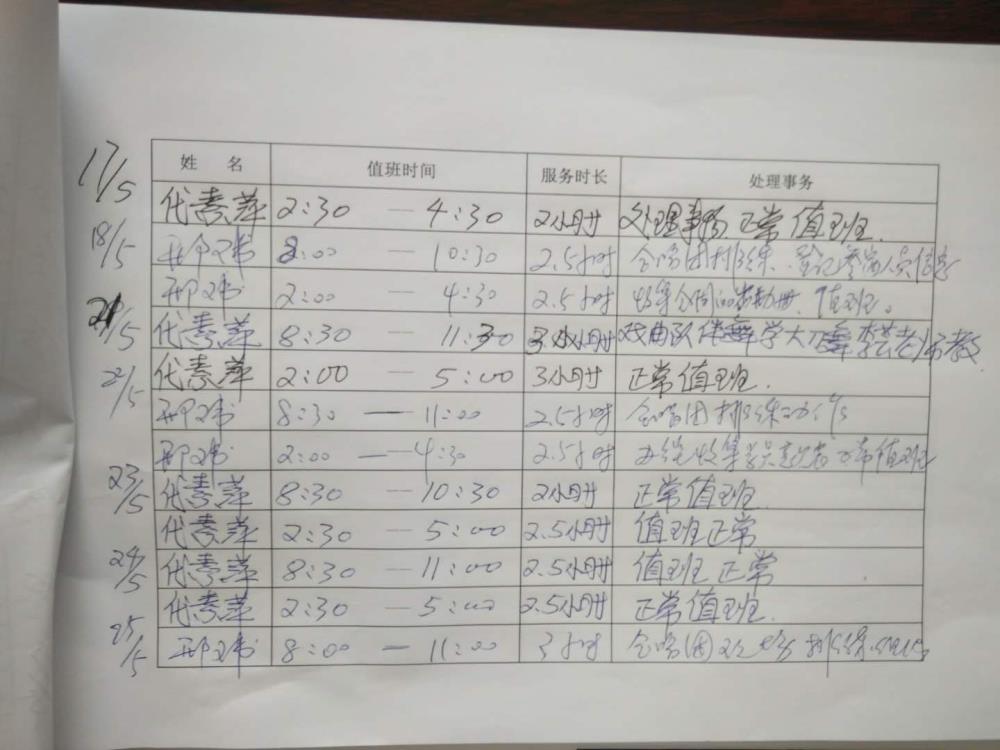 姓 名 值班时间 服务时长 处理事务
17/5 代素萍 2:30 — 4:30 2小时 处理事务 正常值班.
18/5 邢玮 8:00 — 10:30 2.5小时 合唱团排练、登记参演人员信息
邢玮 2:00 — 4:30 2.5小时 收集合同 值班。
21/5 代素萍 8:30 — 11:30 3小时 戏曲队伴舞学大 舞李芸老师教
代素萍 2:00 — 5:00 3小时 正常值班.
22/5 邢玮 8:30 — 11:00 2.5小时 合唱团排练工作
邢玮 2:00 — 4:30 2.5小时 收集学员 正常值班
23/5 代素萍 8:30 — 10:30 2小时 正常值班.
代素萍 2:30 — 5:00 2.5小时 值班正常
24/5 代素萍 8:30 — 11:00 2.5小时 值班正常
代素萍 2:30 — 5:00 2.5小时 正常值班.
25/5 邢玮 8:00 — 11:00 3小时 合唱团 排练